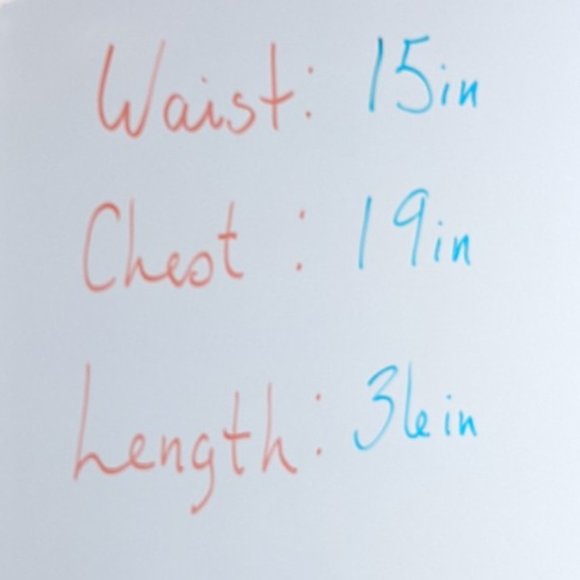 Waist: 15in
Chest: 19in
Length: 36in